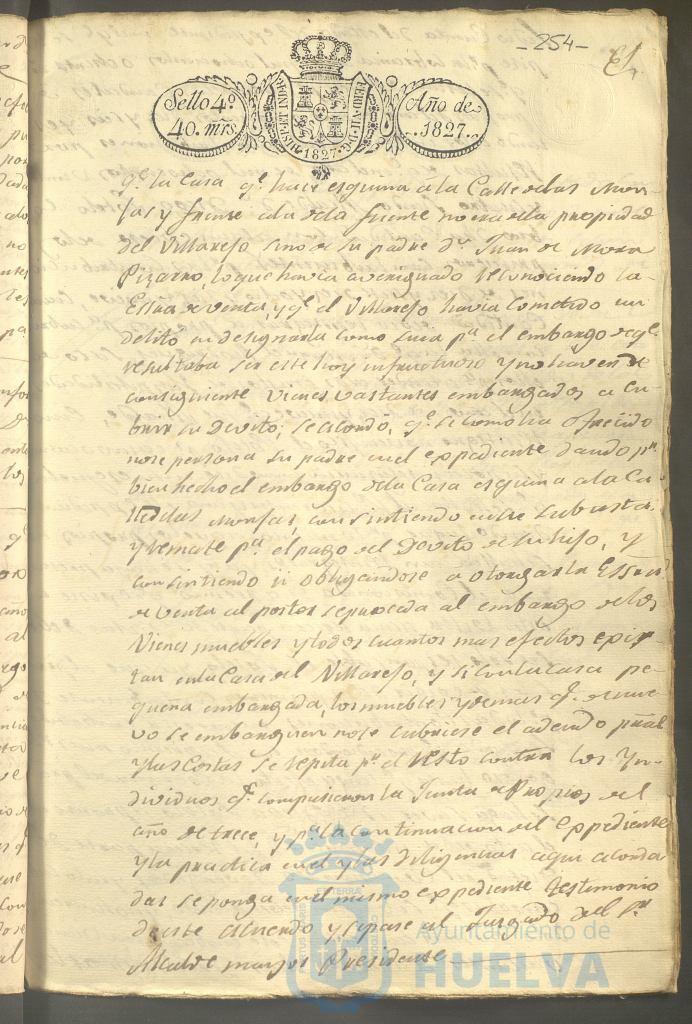 -254-
Sello 4º
40. mrs.
HISP. ET IND. R.
FERD. VII. D. G.
1827.
Año de
1827.
qe. la Casa qe. hace esquina a la Calle de las Mon-
jas y frente a la de la fuente no era de la propiedad
del Villarejo sino de su padre Dn. Juan de Mora
Pizarro, lo que havia averiguado reconociendo la
Essra de venta, y qe. el Villarejo havia cometido un
delito en designarla como suya pa. el embargo de qe.
resultaba ser este hoy infructuoso y no haver de
consiguiente vienes vastantes embargados a cu-
brir su Devito; se acordó, qe. si como ha ofrecido
no se persona su padre en el expediente dando pr.
bien hecho el embargo de la Casa esquina a la Ca-
lle de las Monjas, consintiendo en su subasta
y remate pa. el pago del Devito de su hijo, y
consintiendo u obligandose a otorgar la Essra
de venta al postor se proceda al embargo de los
vienes muebles y todos cuantos mas efectos exis-
tan en la Casa del Villarejo, y si con la casa pe-
queña embargada, los muebles y demas qe. de nue-
vo se embarguen no se cubriese el adeudo pral
y las Costas se repita pr. el resto contra los Yn-
dividuos qe. compusieron la Junta de Propios del
año de trece, y pa. la continuacion del expediente
y la practica en el y las diligencias aqui acorda-
das se ponga en el mismo expediente testimonio
de este acuerdo y se pase al Juzgado del Sr.
Alcalde mayor Presidente
Ayuntamiento de
HUELVA